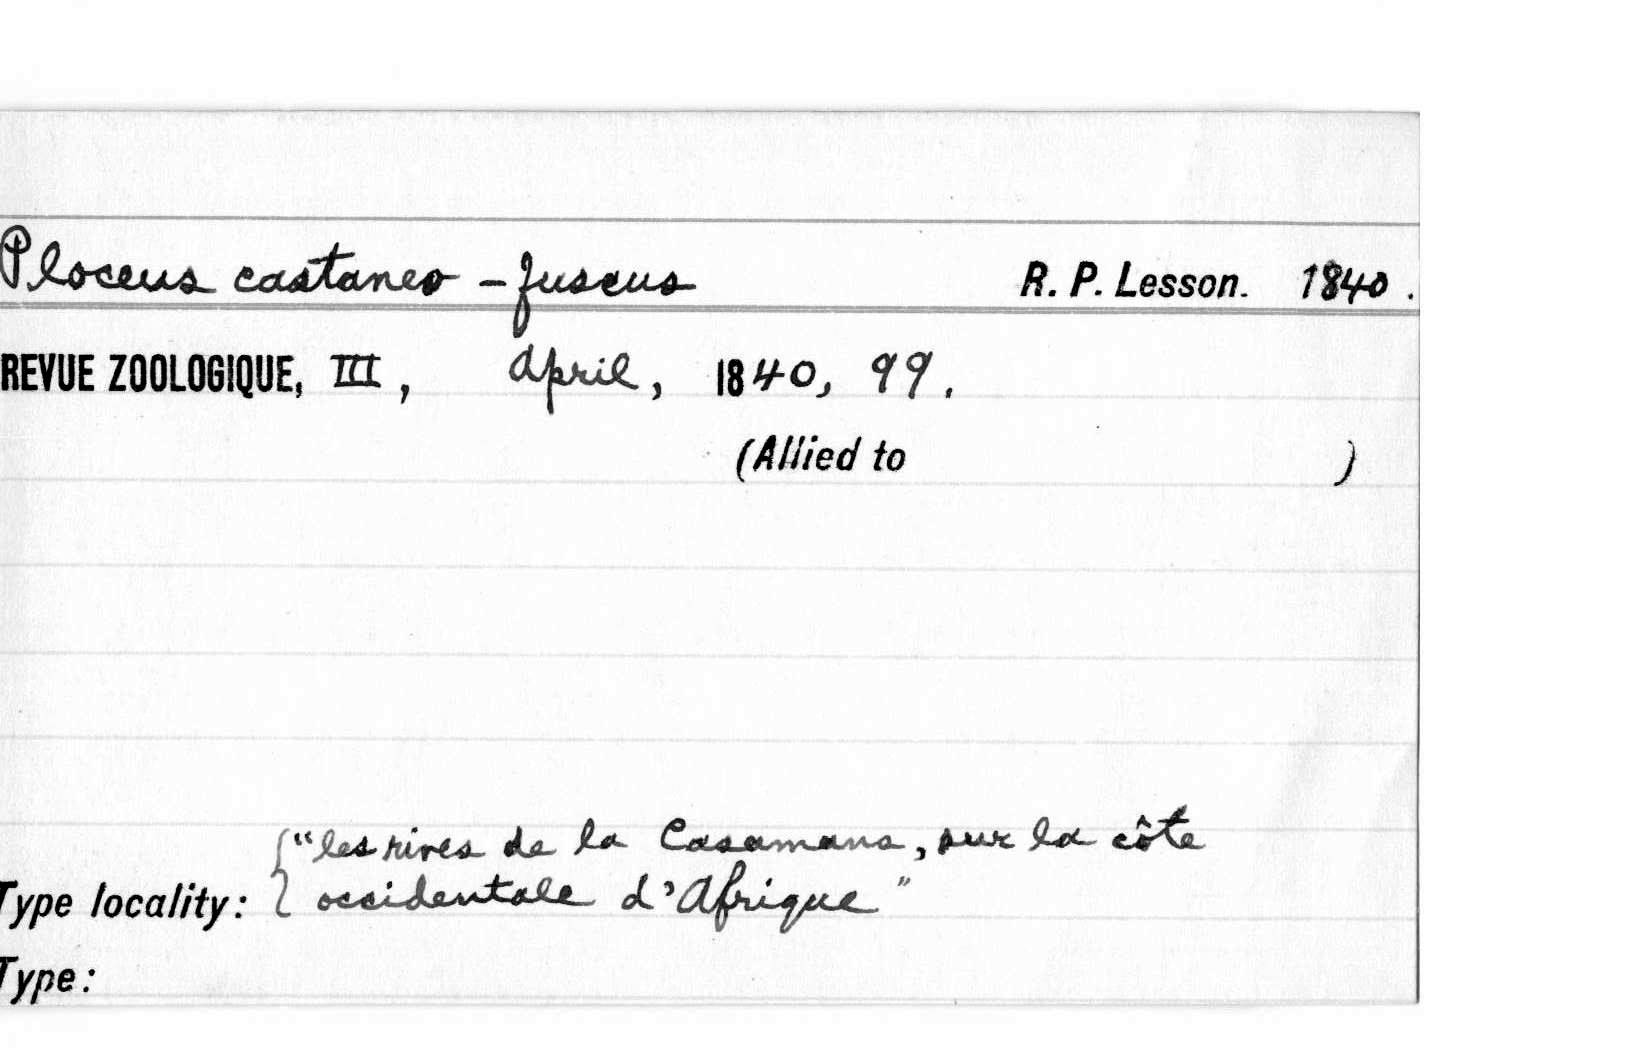 Ploceus castaneo - fuscus R. P. Lesson. 1840.
REVUE ZOOLOGIQUE, III, April, 1840, 99.
(Allied to )
"les rives de la Casamans, sur la côte
Type locality: occidentale d'Afrique"
Type: